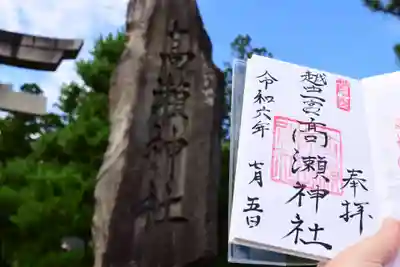 高瀬神社
奉拝
越中一宮 高瀬神社
令和六年
七月五日